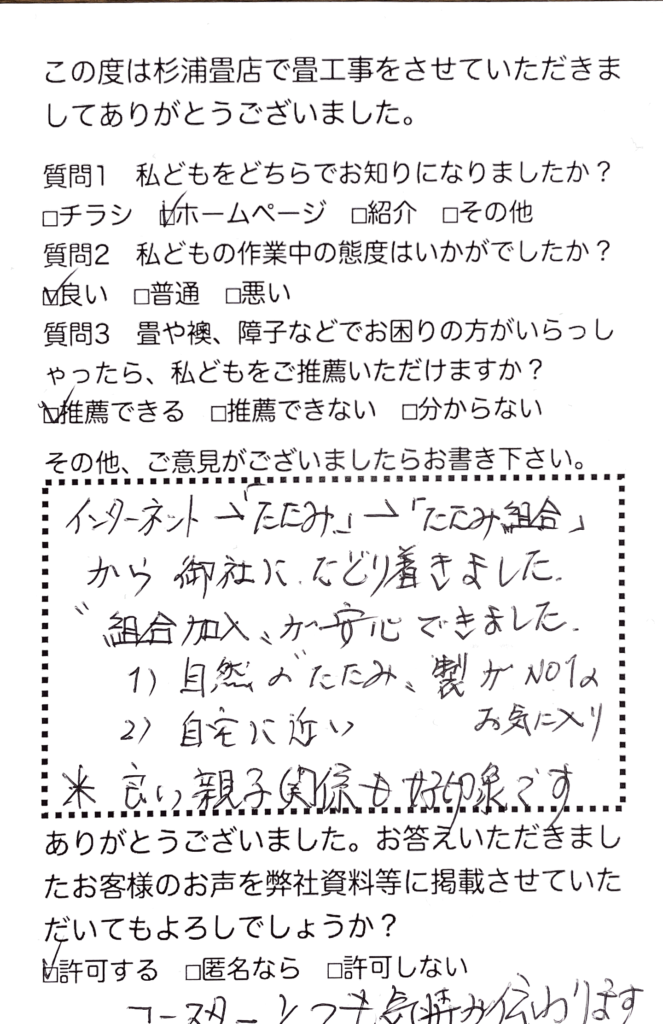 この度は杉浦畳店で畳工事をさせていただきま
してありがとうございました。
質問1 私どもをどちらでお知りになりましたか？
□チラシ ☑ホームページ □紹介 □その他
質問2 私どもの作業中の態度はいかがでしたか？
☑良い □普通 □悪い
質問3 畳や襖、障子などでお困りの方がいらっし
ゃったら、私どもをご推薦いただけますか？
☑推薦できる □推薦できない □分からない
その他、ご意見がございましたらお書き下さい。
インターネット→「たたみ」→「たたみ組合」
から御社にたどり着きました.
〝組合加入〟が安心できました.
1) 自然の〝たたみ〟製がNO1の
お気に入り
2) 自宅に近い
※良い親子関係も好印象です
ありがとうございました。お答えいただきまし
たお客様のお声を弊社資料等に掲載させていた
だいてもよろしでしょうか？
☑許可する □匿名なら □許可しない
コースターとっても気持が伝わります